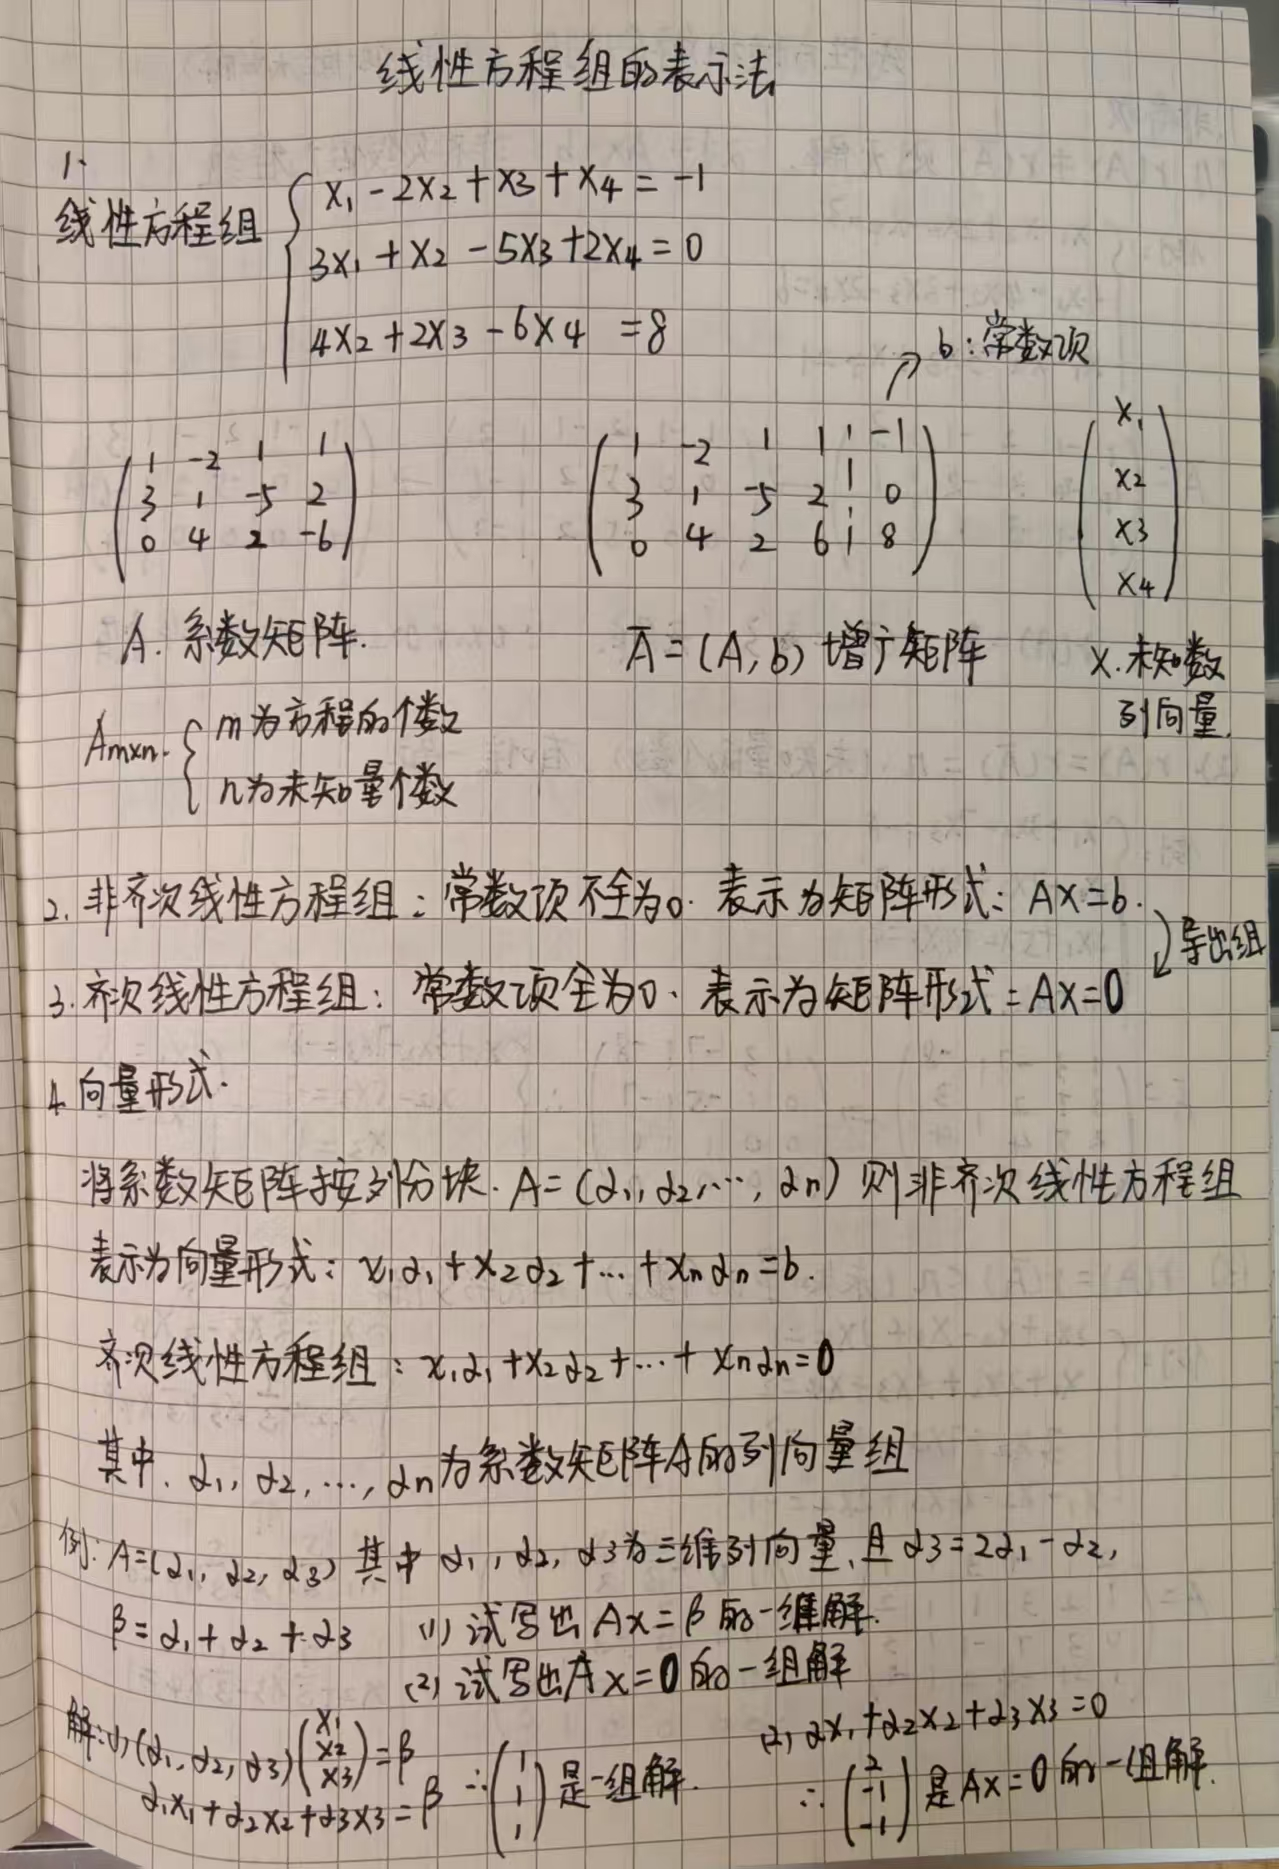 线性方程组的表示法
1.
线性方程组 { x₁ - 2x₂ + x₃ + x₄ = -1
3x₁ + x₂ - 5x₃ + 2x₄ = 0
4x₂ + 2x₃ - 6x₄ = 8
b:常数项
( 1 -2 1 1 ) ( 1 -2 1 1 ¦ -1 ) ( x₁
( 3 1 -5 2 ) ( 3 1 -5 2 ¦ 0 ) x₂
( 0 4 2 -6 ) ( 0 4 2 6 ¦ 8 ) x₃
x₄ )
A. 系数矩阵. Ā = (A, b) 增广矩阵 x.未知数
列向量.
Am×n. { m为方程的个数
n为未知量个数
2. 非齐次线性方程组:常数项不全为0. 表示为矩阵形式: AX=b.
导出组
3. 齐次线性方程组: 常数项全为0. 表示为矩阵形式: AX=0
4. 向量形式.
将系数矩阵按列分块. A=(α₁, α₂, ⋯, αn) 则非齐次线性方程组
表示为向量形式: x₁α₁ + x₂α₂ + ⋯ + xnαn = b.
齐次线性方程组: x₁α₁ + x₂α₂ + ⋯ + xnαn = 0
其中. α₁, α₂, ⋯, αn为系数矩阵A的列向量组
例: A=(α₁, α₂, α₃) 其中 α₁, α₂, α₃为三维列向量,且 α₃=2α₁-α₂,
β=α₁+α₂+α₃ (1) 试写出 Ax=β 的一组解.
(2) 试写出Ax=0的一组解
解:(1) (α₁, α₂, α₃) ( x₁ x₂ x₃ ) = β
α₁x₁+α₂x₂+α₃x₃=β ∴ ( 1 1 1 ) 是一组解.
(2) αx₁+α₂x₂+α₃x₃=0
∴ ( 2 -1 -1 ) 是Ax=0的一组解.